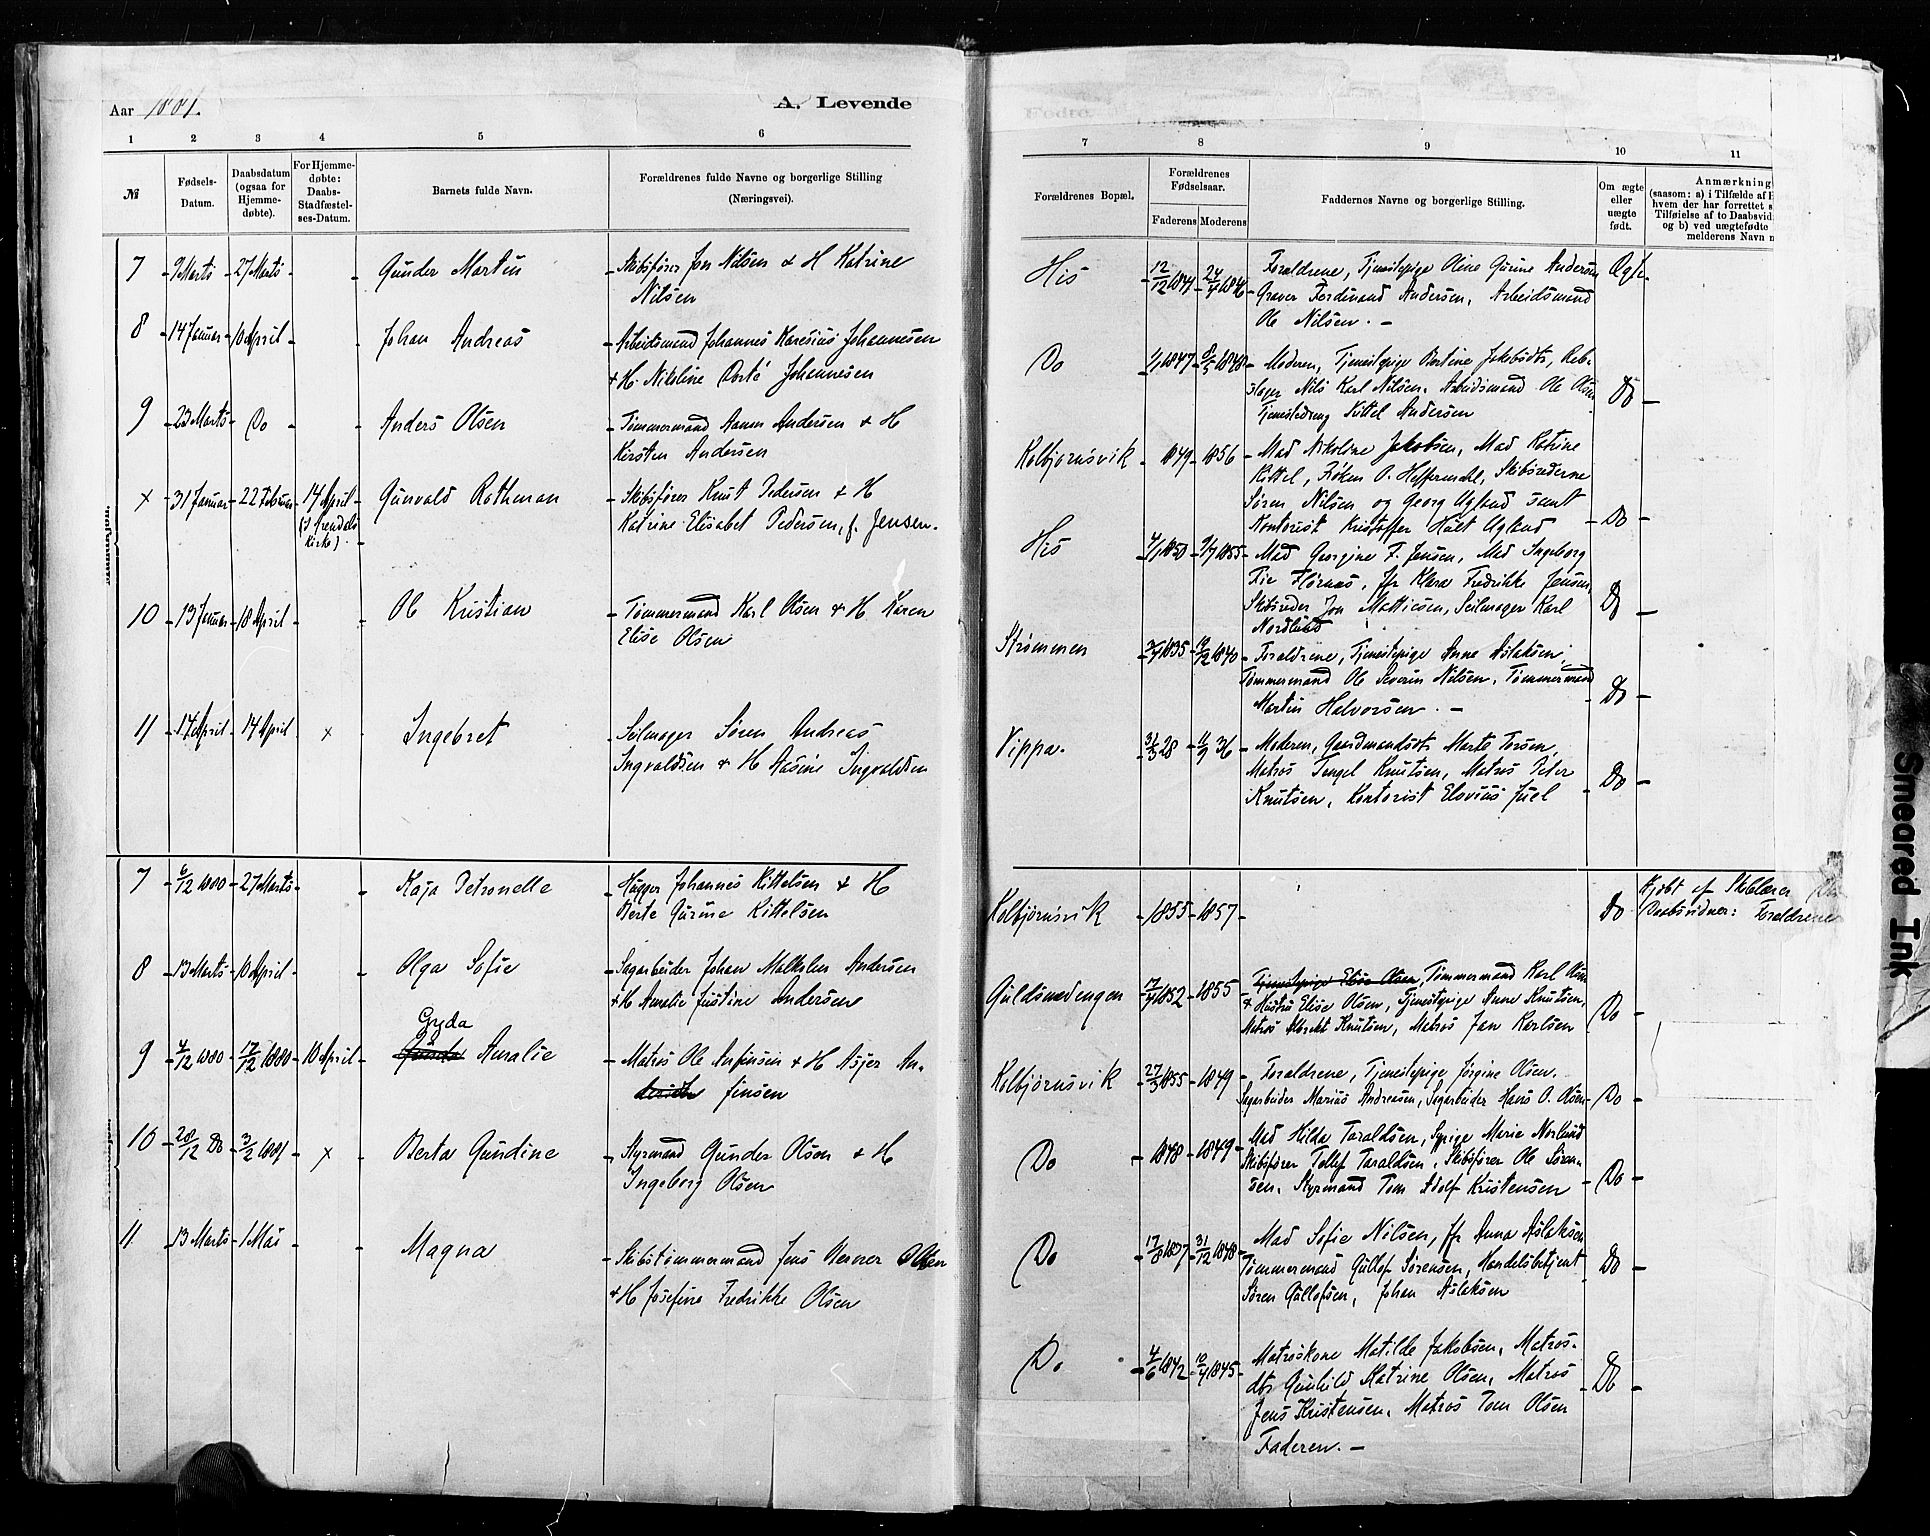 Aar 1881.
A. Levende
1 2 3 4 5 6
№
Fødsels-
Datum.
Daabsdatum
(ogsaa for
Hjemme-
døbte).
For Hjemme-
døbte:
Daabs-
Stadfæstel-
ses-Datum.
Barnets fulde Navn.
Forældrenes fulde Navne og borgerlige Stilling
(Næringsvei).
7 9 Marts 27 Marts Gunder Martin Skibsfører Jon Nilsen & H Katrine
Nilsen
8 14 Januar 10 April Johan Andreas Arbeidsmand Johannes Karesius Johannesen
& H. Nikoline Dorté Johannesen
9 23 Marts Do Anders Olsen Tømmermand Aanon Andersen & H
Kirsten Andersen
x 31 Januar 22 Februar 14 April Gunvald Rothman Skibsfører Knut Pedersen & H
(I Arendals
Kirke). Katrine Elisabet Pedersen, f. Jensen.
10 13 Januar 18 April Ole Kristian Tømmermand Karl Olsen & H Karen
Elise Olsen
11 17 April 14 April x Ingebret Seilmager Søren Andreas
Ingvaldsen & H Aasine Ingvaldsen
7 6/12 1880 27 Marts Kaja Petronelle Hugger Johannes Kittelsen & H
Berte Gurine Kittelsen
8 13 Marts 10 April Olga Sofie Sagarbeider Johan Malkolm Andersen
& H Amalie Justine Andersen
Gyda
9 4/12 1880 17/12 1880 10 April Gunda Amalie Matros Ole Anfinsen & H Asjer An-
finsen
10 28/12 Do 3/2 1881 x Berta Gundine Styrmand Gunder Olsen & H
Ingeborg Olsen
11 13 Marts 1 Mai Magna Skibstømmermand Jens Verner Olsen
& H Josefine Fredrikke Olsen
Fødte.
7 8 9 10 11
Forældrenes Bopæl.
Forældrenes
Fødselsaar.
Faderens Moderens
Faddernes Navne og borgerlige Stilling.
Om ægte
eller
uægte
født.
Anmærkning
(saasom: a) i Tilfælde af H
hvem der har forrettet s
Tilføielse af to Daabsvid
og b) ved uægtefødte
melderens Navn
His 12/12 1844 24/4 1846 Forældrene, Tjenestepige Oline Gurine Andersen Ægte
Graver Ferdinand Andersen, Arbeidsmand
Ole Nilsen. –
Do 1/1 1847 8/5 1848 Moderen, Tjenestepige Bertine Jakobsdtr, Reb-
slager Nils Karl Nilsen, Arbeidsmand Ole Olsen Do
Tjenestedreng Kittel Andersen
Kolbjørnsvik 1849 1856 Mad Nikoline Jakobsen, Mad Katrine
Kittel, Frøken O. Heffermehl, Skibsrederne
Søren Nilsen og Georg Ugland samt
Kontorist Kristoffer Holt Ugland Do
His 4/1 1850 9/7 1855 Mad Georgine F. Jensen, Mad Ingeborg
Fie Flørnæs, Jfr Klara Fredrikke Jensen
Skibsreder Jon Mattiesen, Seilmager Karl Do
Nordlund
Strømmen 3/4 1835 12/12 1840 Forældrene, Tjenestepige Anne Aslaksen,
Tømmermand Ole Severin Nilsen, Tømmermand
Martin Halvorsen. – Do
Vippa. 31/3 28 11/9 36 Moderen, Gaardmandsdtr Marte Torsen,
Matros Tengel Knutsen, Matros Peter
Knutsen, Kontorist Elovius Juel Do
Kolbjørnsvik 1855 1857 Do Hjdbt af Skolelærer
Daabsvidner: Forældrene
Guldsmedengen 17/4 1852 1855 Tjenestepige Elise Olsen, Tømmermand Karl Olsen
& Hustru Elise Olsen, Tjenestepige Anne Knutsen,
Matros Albrekt Knutsen, Matros Jan Karlsen Do
Kolbjørnsvik 27/3 1855 1849 Forældrene, Tjenestepige Jørgine Olsen.
Sagarbeider Marius Andreasen, Sagarbeider Hans O. Olsen Do
Do 1848 1849 Mad Hilda Taraldsen, Sypige Marie Norlund
Skibsfører Tellef Taraldsen, Skibsfører Ole Søren-
sen, Styrmand Tom Adolf Kristensen Do
Do 17/8 1837 31/12 1848 Mad Sofie Nilsen, Jfr Anna Aslaksen
Tømmermand Gullof Sørensen, Handelsbetjent Do
Søren Gullofsen, Johan Aslaksen
Do 4/6 1842 10/4 1845 Matroskone Matilde Jakobsen, Matros-
dtr Gunhild Katrine Olsen, Matros Do
Jens Kristensen, Matros Tom Olsen
Faderen. –
Smeared Ink